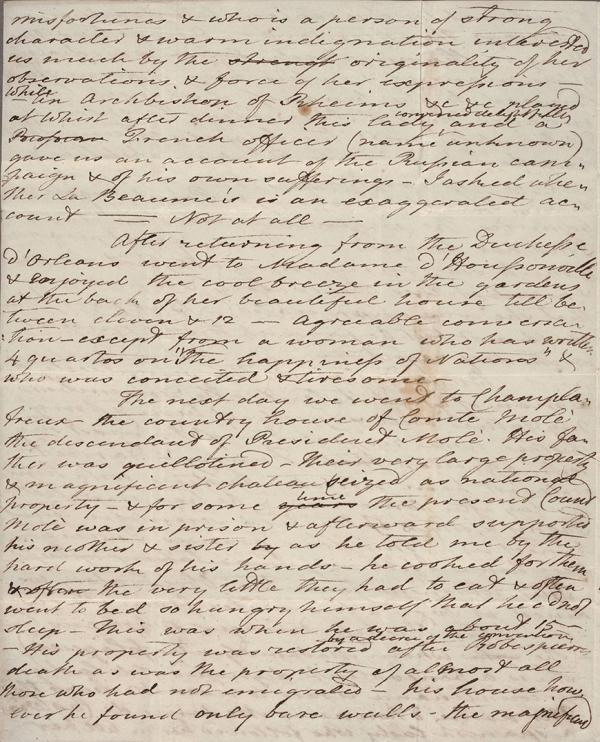 misfortunes & who is a person of strong
character & warm indignation interested
us much by the strength originality of her
observations & force of her expressions —
while
— an Archbishop of Rheims &c &c played
at Whist after dinner this lady and a
French officer (name unknown)
gave us an account of the Russian cam-
paign & of his own sufferings — I asked whe-
ther La Beaume's is an exaggerated ac-
count —— Not at all —
After returning from the Duchesse
d'Orleans went to Madame d'Houssonville
& enjoyed the cool breeze in the gardens
at the back of her beautiful house till be-
tween eleven & 12 — agreable conversa-
tion — except from a woman who has written
4 quartos on "The happiness of Nations" &
who was conceited & tiresome —
The next day we went to Champla-
treux — the country house of Comte Molé
the descendant of President Molé. His fa-
ther was guillotined — their very large property
& magnificent chateau seized as national
time
property — & for some years the present Count
Molé was in prison & afterward supported
his mother & sister by as he told me by the
hard work of his hands — he cooked for them
& often the very little they had to eat & often
went to bed so hungry himself that he cd not
sleep — this was when he was about 15 —
by a decree of the convention
— His property was restored after Robespierre's
death as was the property of almost all
those who had not emigrated — his house how-
ever he found only bare walls — the magnificent